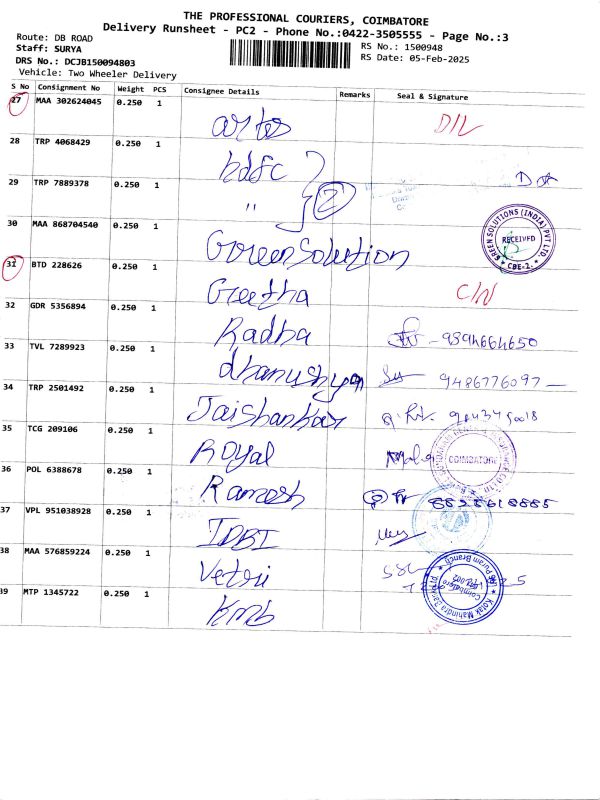 THE PROFESSIONAL COURIERS, COIMBATORE
Delivery Runsheet - PC2 - Phone No.:0422-3505555 - Page No.:3
Route: DB ROAD
RS No.: 1500948
Staff: SURYA
RS Date: 05-Feb-2025
DRS No.: DCJB150094803
Vehicle: Two Wheeler Delivery
S No Consignment No Weight PCS Consignee Details Remarks Seal & Signature
27 MAA 302624045 0.250 1 D/L
28 TRP 4068429 0.250 1 hdfc
29 TRP 7889378 0.250 1 " 2
30 MAA 868704540 0.250 1 Green Solution GREEN SOLUTIONS (INDIA) PVT LTD. RECEIVED CBE-2.
31 BTD 228626 0.250 1 Geetha C/N
32 GDR 5356894 0.250 1 Radha
33 TVL 7289923 0.250 1 dhanushya 9486776097
34 TRP 2501492 0.250 1 Jaishankar
35 TCG 209106 0.250 1 Royal COIMBATORE
36 POL 6388678 0.250 1 Ramesh
37 VPL 951038928 0.250 1 IDBI
38 MAA 576859224 0.250 1 Vetri
39 MTP 1345722 0.250 1 Kmb Kotak Mahindra Bank